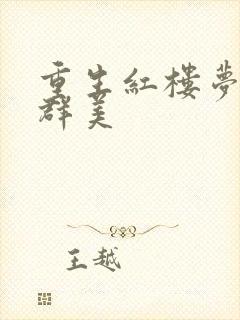 重生紅樓夢
群美
王越